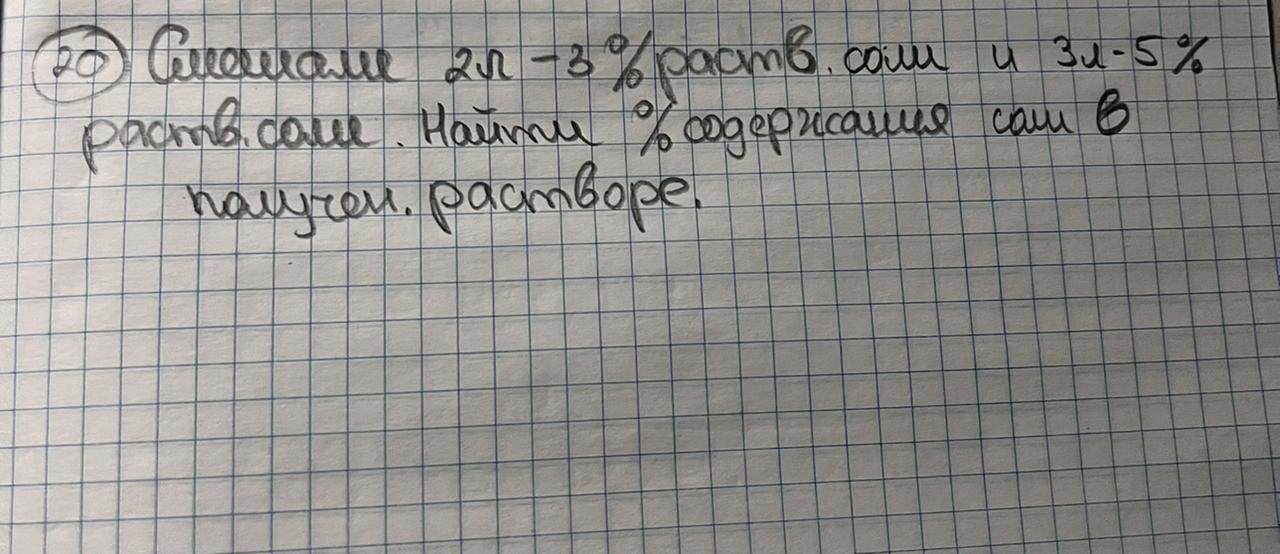 20 Смешали 2л - 3% раств. соли и 3л - 5%
раств. соли. Найти % содержания соли в
получен. растворе.